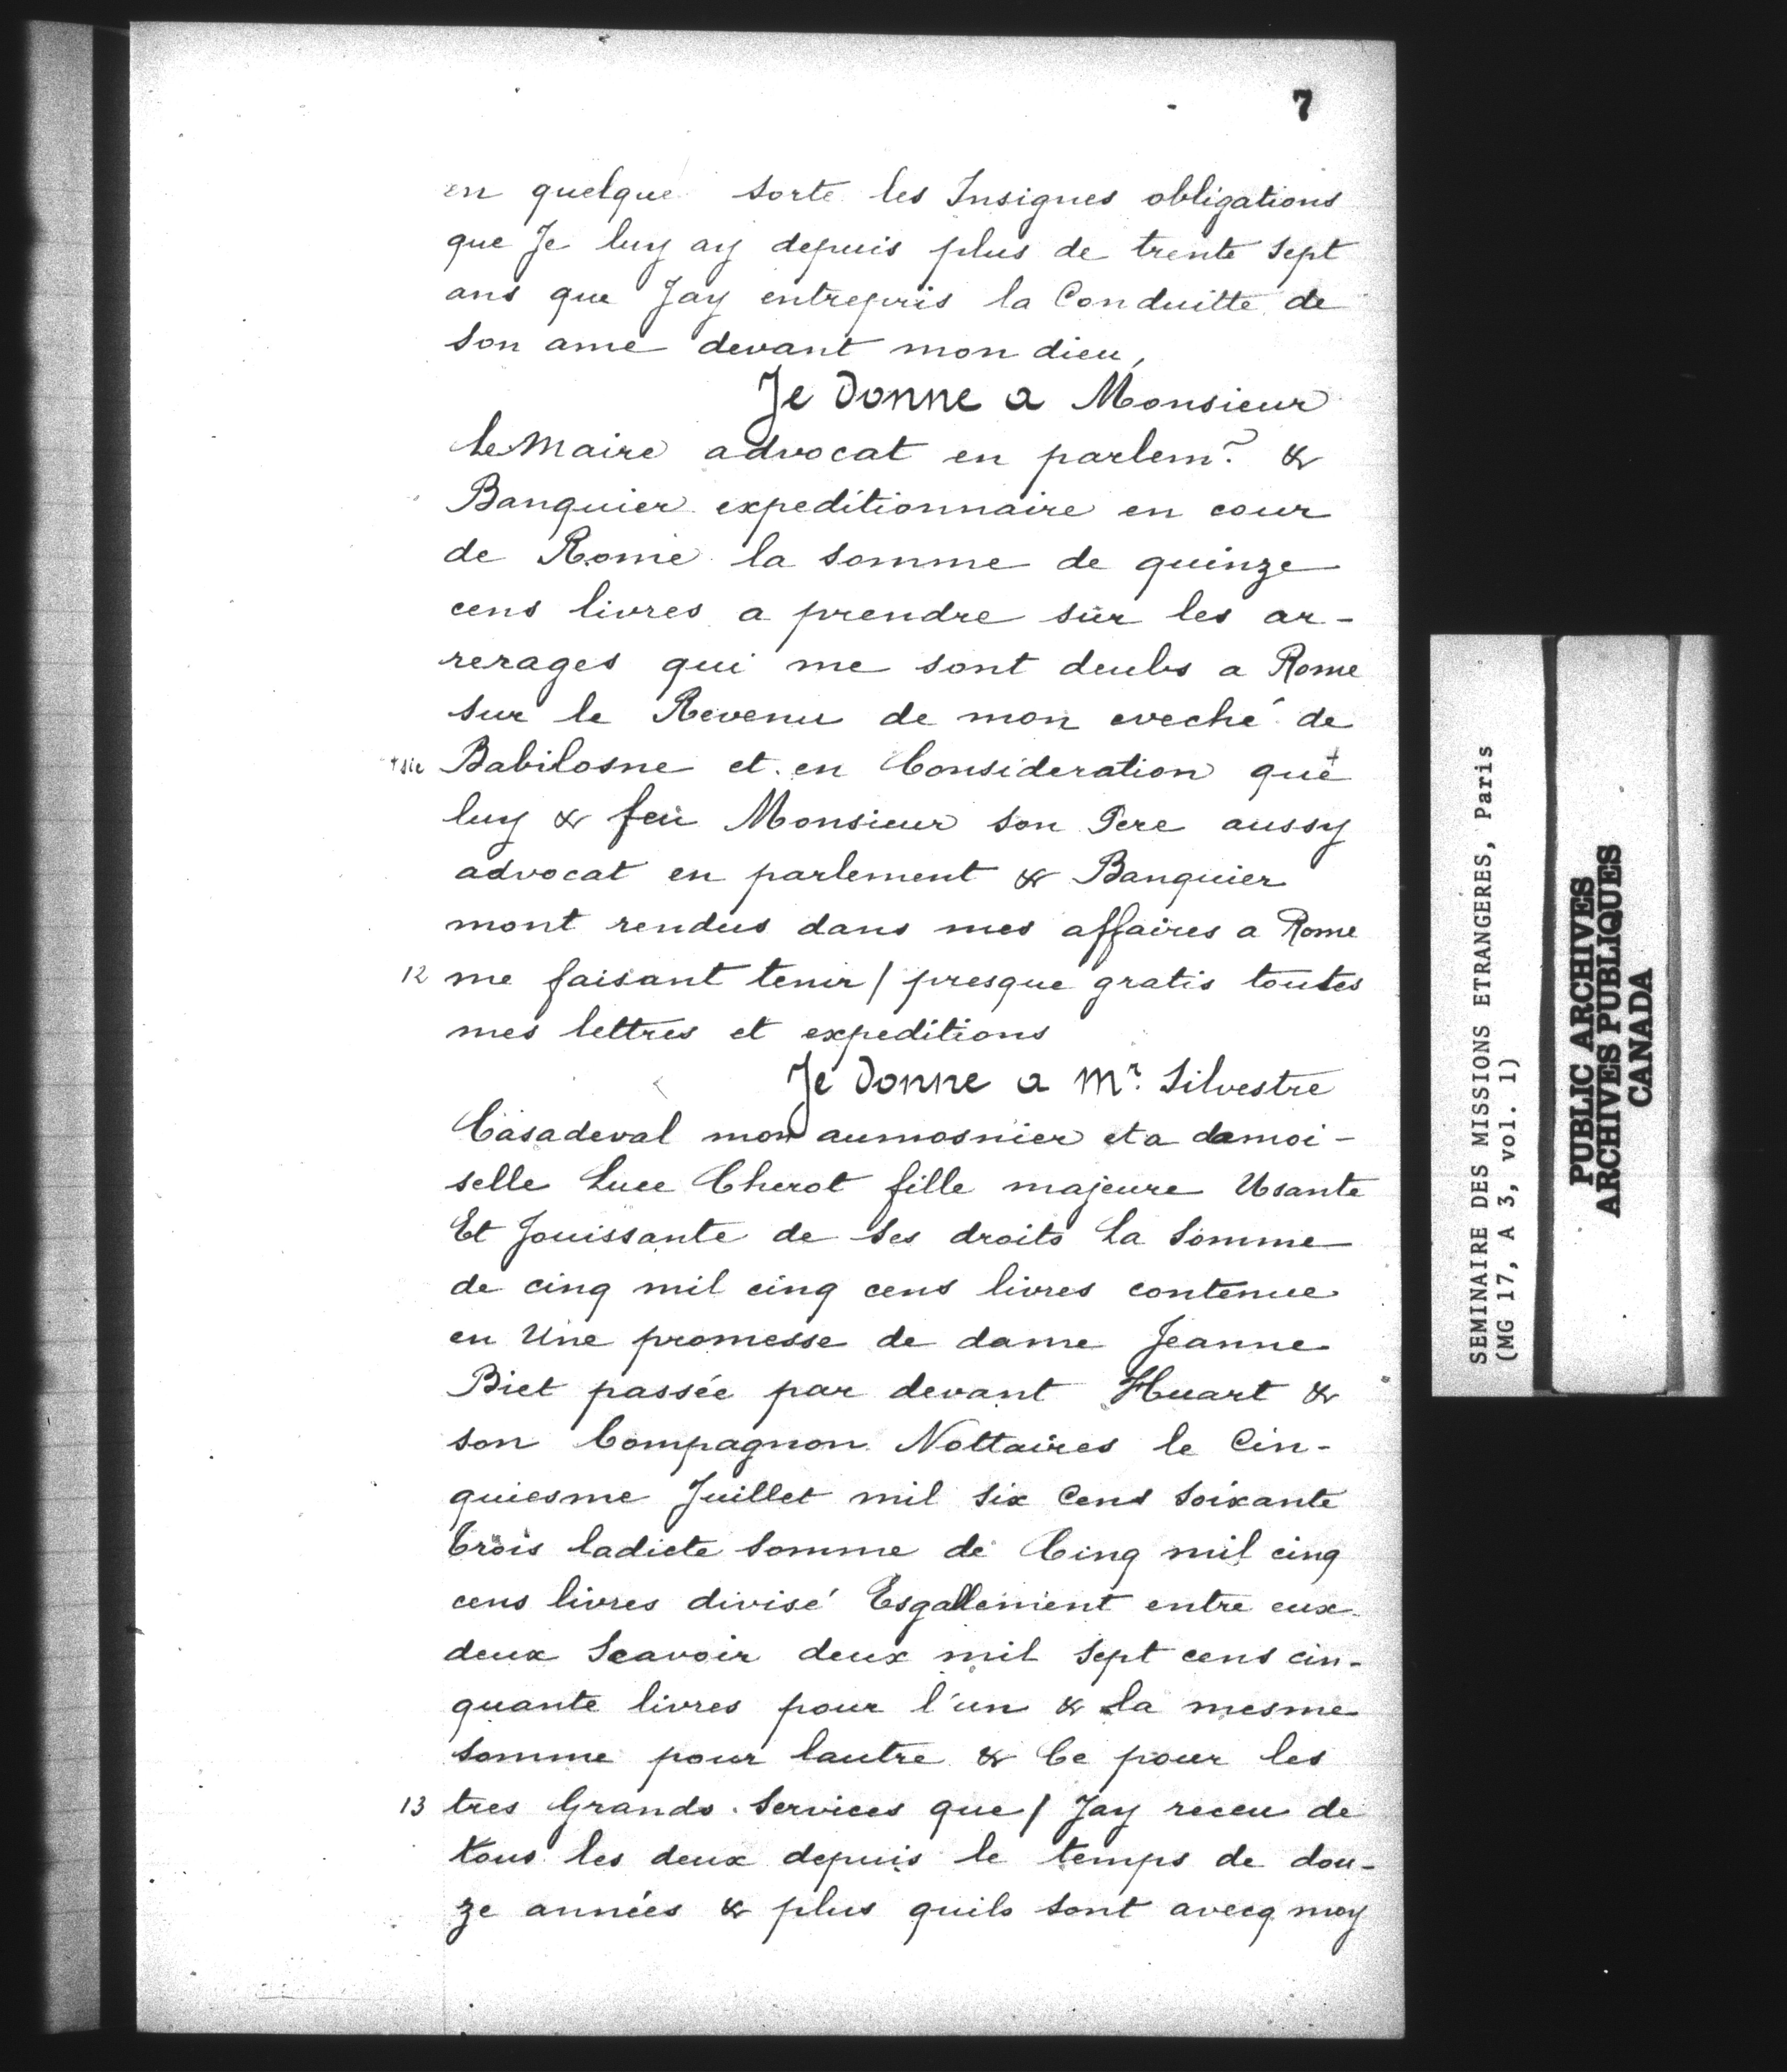 7
en quelque sorte les Insignes obligations
que Je luy ay depuis plus de trente sept
ans que Jay entrepris la Conduitte de
son ame devant mon dieu,
Je donne a Monsieur
le Maire advocat en parlem.t &
Banquier expeditionnaire en cour
de Rome la somme de quinze
cens livres a prendre sur les ar-
rerages qui me sont deubs a Rome
sur le Revenu de mon eveché de
+ sic Babilosne et en Consideration que +
luy & feu Monsieur son Pere aussy
advocat en parlement & Banquier
mont rendus dans mes affaires a Rome
12 me faisant tenir / presque gratis toutes
mes lettres et expeditions
Je donne a Mr. Silvestre
Casadeval mon aumosnier et a damoi-
selle Luce Cherot fille majeure Usante
Et Jouissante de Ses droits La Somme
de cinq mil cinq cens livres contenue
en Une promesse de dame Jeanne
Biet passée par devant Huart &
son Compagnon Nottaires le Cin-
quiesme Juillet mil Six Cens Soixante
trois ladicte Somme de Cinq mil cinq
cens livres divisé Esgallement entre eux
deux Scavoir deux mil Sept cens cin-
quante livres pour l'un & la mesme
Somme pour lautre & Ce pour les
13 tres Grands Services que / Jay receu de
tous les deux depuis le temps de dou-
ze années & plus quils sont avecq moy
SEMINAIRE DES MISSIONS ETRANGERES, Paris
(MG 17, A 3, vol. 1)
PUBLIC ARCHIVES
ARCHIVES PUBLIQUES
CANADA